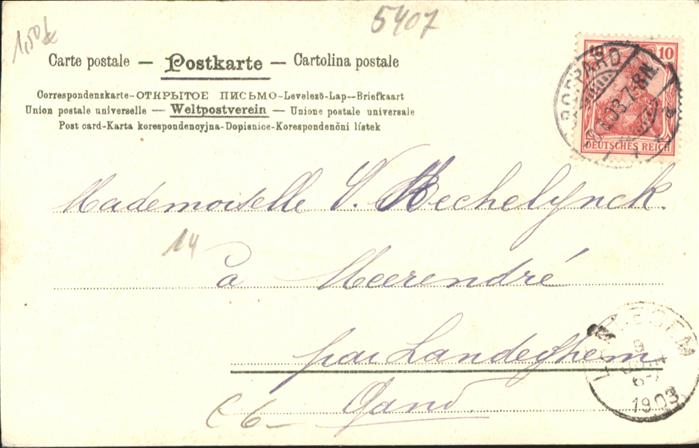 1,50
5407
Carte postale — Postkarte — Cartolina postale
Correspondenzkarte-ОТКРЫТОЕ ПИСЬМО-Levelező-Lap--Briefkaart
Union postale universelle — Weltpostverein — Unione postale universale
Post card-Karta korespondencyjna-Dopisnice-Korespondenčni listek
10
DEUTSCHES REICH
BOPPARD
03.7-8N.
Mademoiselle V. Bechelynck
14
à Meerendré
par Landeghem
Gand.
C6-
LANDEGEM
1903